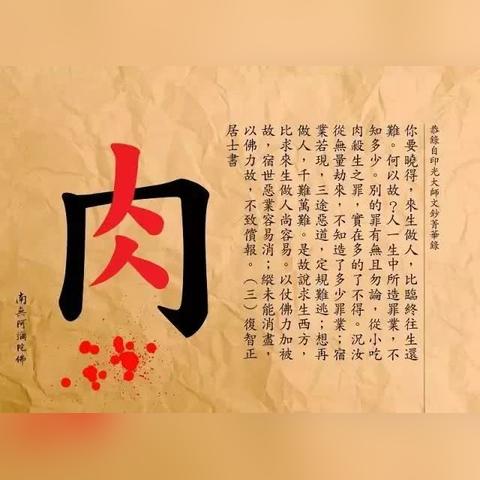 恭錄自印光大師文鈔菁華錄
你要曉得，來生做人，比臨終往生還
難。何以故？人一生中所造罪業，不
知多少。別的罪有無且勿論，從小吃
肉殺生之罪，實在多的了不得。況汝
從無量劫來，不知造了多少罪業；宿
業若現，三途惡道，定規難逃；想再
做人，千難萬難。是故說求生西方，
比求來生做人尚容易。以仗佛力加被
故，宿世惡業容易消；縱未能消盡，
以佛力故，不致償報。（三）復智正
居士書
肉
南無阿彌陀佛